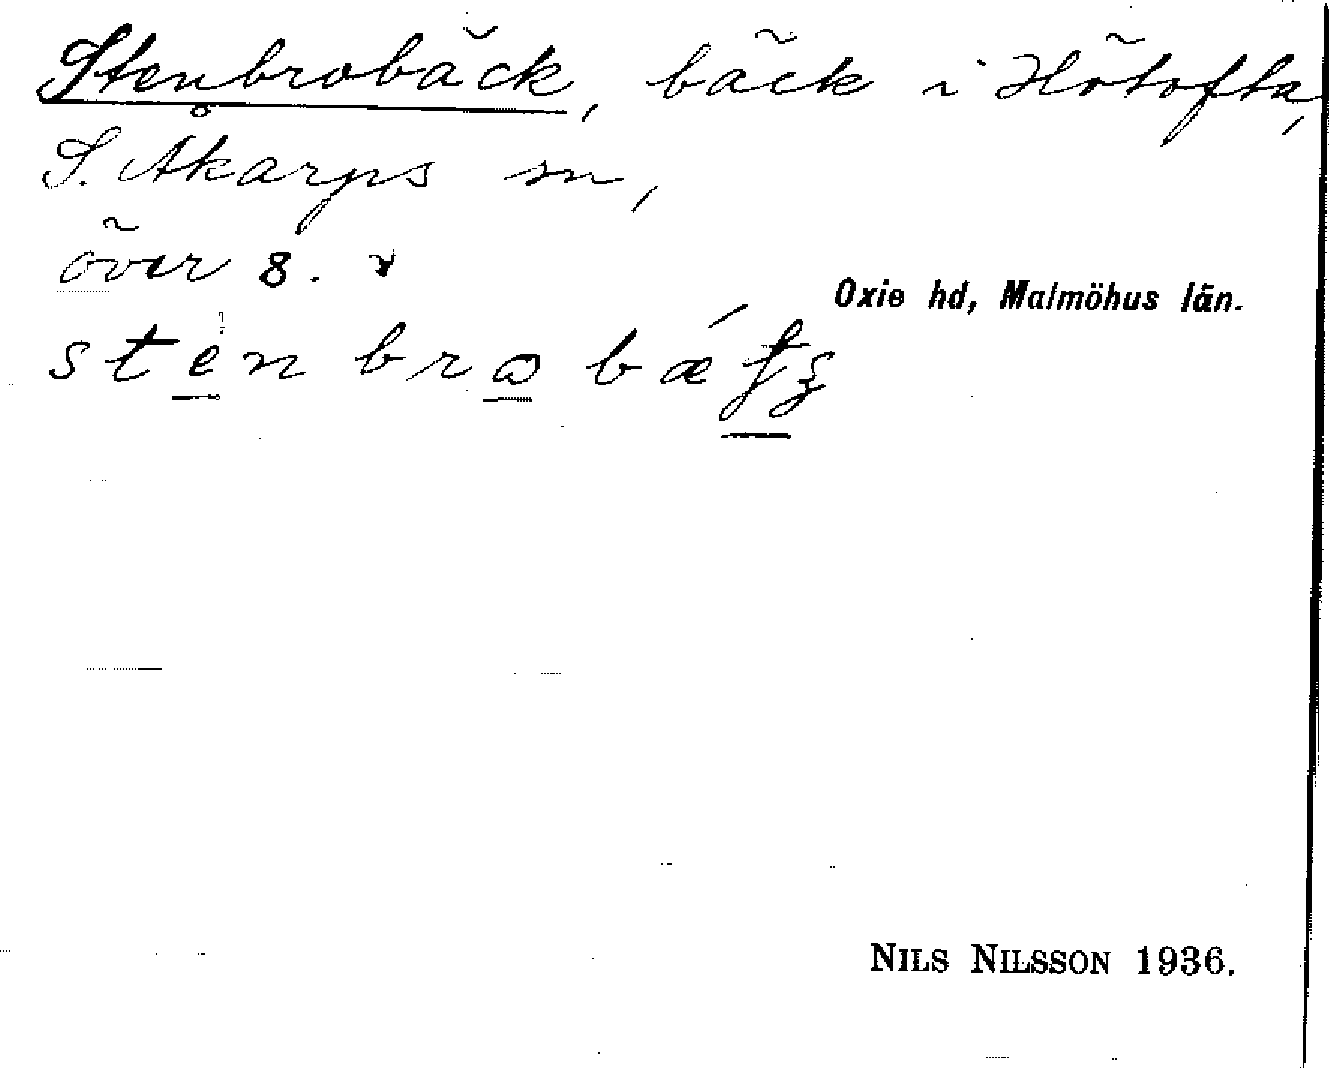 Stenbrobäck, bäck i Hötofta,
S. Åkarps sn,
över 8.
Oxie hd, Malmöhus län.
sten bro bæ
NILS NILSSON 1936.